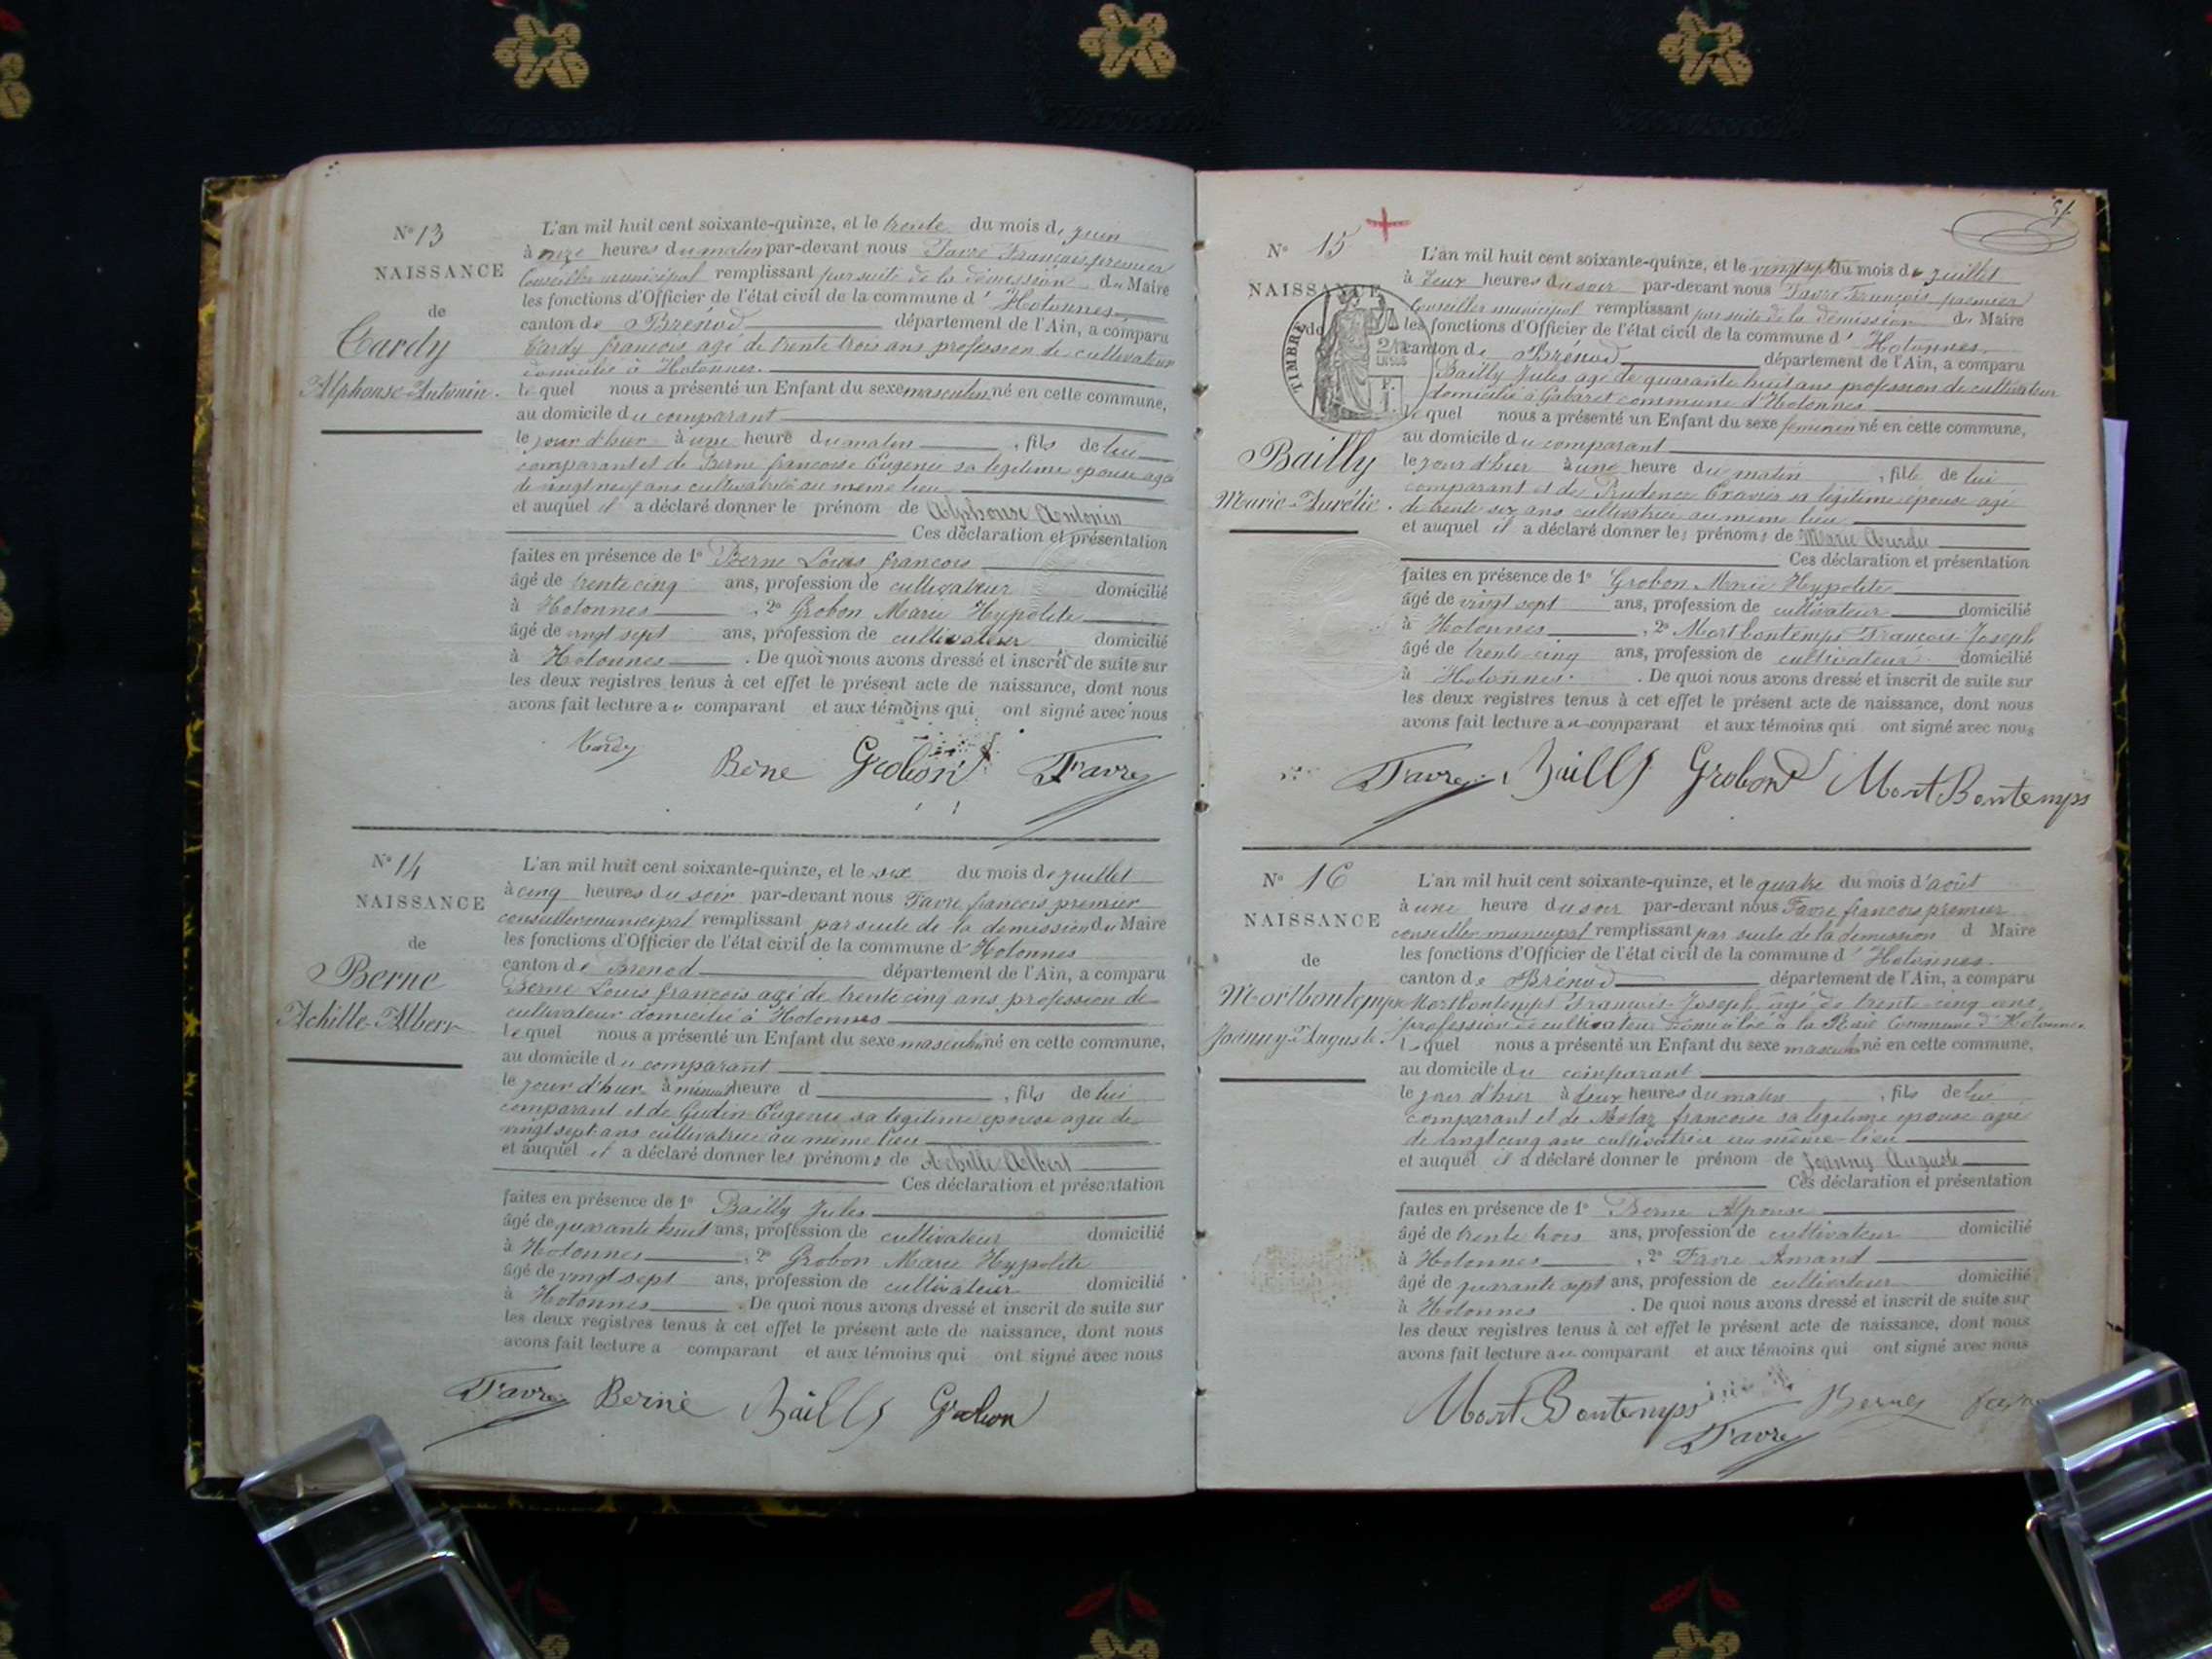 N° 13
NAISSANCE
de
Cardy
Alphonse-Antonin.
L'an mil huit cent soixante-quinze, et le trente du mois de juin
à onze heures du matin par-devant nous Favre François premier
Conseiller municipal remplissant par suite de la démission du Maire
les fonctions d'Officier de l'état civil de la commune d' Hotonnes
canton de Brénod département de l'Ain, a comparu
Cardy françois agé de trente trois ans profession de cultivateur
domicilié à Hotonnes.
lequel nous a présenté un Enfant du sexe masculin né en cette commune,
au domicile du comparant
le jour d'hier à une heure du matin, fils de lui
comparant et de Berne francoise Eugenie sa legitime epouse agée
de vingt neuf ans cultivatrice au meme lieu
et auquel il a déclaré donner le prénom de Alphonse Antonin
Ces déclaration et présentation
faites en présence de 1° Berne Louis francois
âgé de trente cinq ans, profession de cultivateur domicilié
à Hotonnes, 2° Grobon Marie Hypolite
âgé de vingt sept ans, profession de cultivateur domicilié
à Hotonnes. De quoi nous avons dressé et inscrit de suite sur
les deux registres tenus à cet effet le présent acte de naissance, dont nous
avons fait lecture au comparant et aux témoins qui ont signé avec nous
Cardy Berne Grobon Favre
N° 14
NAISSANCE
de
Berne
Achille-Albert
L'an mil huit cent soixante-quinze, et le six du mois de juillet
à cinq heures du soir par-devant nous Favre francois premier
conseiller municipal remplissant par suite de la demission du Maire
les fonctions d'Officier de l'état civil de la commune d' Hotonnes
canton de Brenod département de l'Ain, a comparu
Berne Louis françois agé de trente cinq ans profession de
cultivateur domicilié à Hotonnes
lequel nous a présenté un Enfant du sexe masculin né en cette commune,
au domicile du comparant
le jour d'hier à minuit heure d, fils de lui
comparant et de Gudin Eugenie sa legitime epouse agee de
vingt sept ans cultivatrice au même lieu
et auquel il a déclaré donner les prénoms de Achille Albert
Ces déclaration et présentation
faites en présence de 1° Bailly Jules
âgé de quarante huit ans, profession de cultivateur domicilié
à Hotonnes, 2° Grobon Marie Hypolite
âgé de vingt sept ans, profession de cultivateur domicilié
à Hotonnes. De quoi nous avons dressé et inscrit de suite sur
les deux registres tenus à cet effet le présent acte de naissance, dont nous
avons fait lecture a comparant et aux témoins qui ont signé avec nous
Favre Berne Bailly Grobon
N° 15
NAISSANCE
de
TIMBRE
Bailly
Marie-Aurélie.
L'an mil huit cent soixante-quinze, et le vingt sept du mois de juillet
à deux heures du soir par-devant nous Favre François premier
Conseiller municipal remplissant par suite de la démission du Maire
les fonctions d'Officier de l'état civil de la commune d' Hotonnes
canton de Brénod département de l'Ain, a comparu
Bailly Jules agé de quarante huit ans profession de cultivateur
domicilié à Gabaret commune d'Hotonnes
lequel nous a présenté un Enfant du sexe féminin né en cette commune,
au domicile du comparant
le jour d'hier à une heure du matin, fille de lui
comparant et de Prudence sa légitime épouse agé
de trente six ans cultivatrice au meme lieu
et auquel il a déclaré donner les prénoms de Marie
Ces déclaration et présentation
faites en présence de 1° Grobon Marie Hypolite
âgé de vingt sept ans, profession de cultivateur domicilié
à Hotonnes, 2° Mortbontemps François Joseph
âgé de trente cinq ans, profession de cultivateur domicilié
à Hotonnes. De quoi nous avons dressé et inscrit de suite sur
les deux registres tenus à cet effet le présent acte de naissance, dont nous
avons fait lecture au comparant et aux témoins qui ont signé avec nous
Favre Bailly Grobon MortBontemps
N° 16
NAISSANCE
de
Mortbontemps
Joanny-Auguste.
L'an mil huit cent soixante-quinze, et le quatre du mois d'août
à une heure du soir par-devant nous Favre francois premier
conseiller municipal remplissant par suite de la demission d Maire
les fonctions d'Officier de l'état civil de la commune d' Hotonnes
canton de Brénod département de l'Ain, a comparu
Mortbontemps François-Joseph, âgé de trente-cinq ans,
profession de cultivateur domicilié à la Commune d'Hotonnes
lequel nous a présenté un Enfant du sexe masculin né en cette commune,
au domicile du comparant
le jour d'hier à deux heures du matin, fils de lui
comparant et de francoise sa legitime epouse agée
de vingt cinq ans cultivatrice au même lieu
et auquel il a déclaré donner le prénom de Joanny Auguste
Ces déclaration et présentation
faites en présence de 1° Berne Alponse
âgé de trente trois ans, profession de cultivateur domicilié
à Hotonnes, 2° Favre Amand
âgé de quarante sept ans, profession de cultivateur domicilié
à Hotonnes. De quoi nous avons dressé et inscrit de suite sur
les deux registres tenus à cet effet le présent acte de naissance, dont nous
avons fait lecture au comparant et aux témoins qui ont signé avec nous
MortBontemps Favre